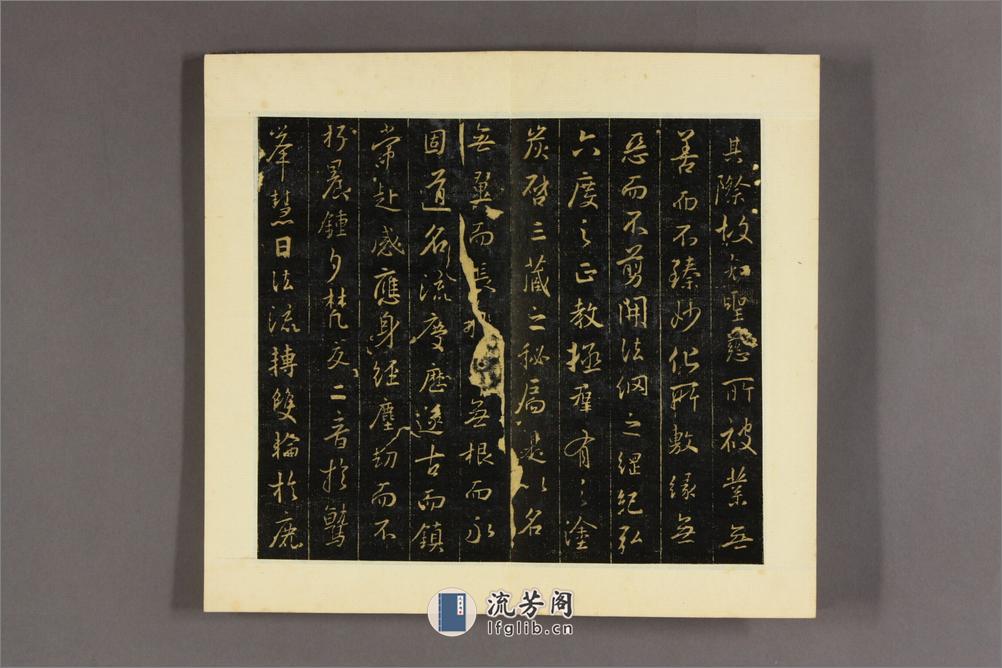 其際故知聖慈所被業無
善而不臻妙化所敷緣無
惡而不剪開法網之綱紀弘
六度之正教拯群有之塗
炭啓三藏之秘扃是以名
無翼而長飛道無根而永
固道名流慶歷遂古而鎮
常赴感應身經塵劫而不
朽晨鍾夕梵交二音於鷲
峯慧日法流轉雙輪於鹿
流芳阁
lfglib.cn